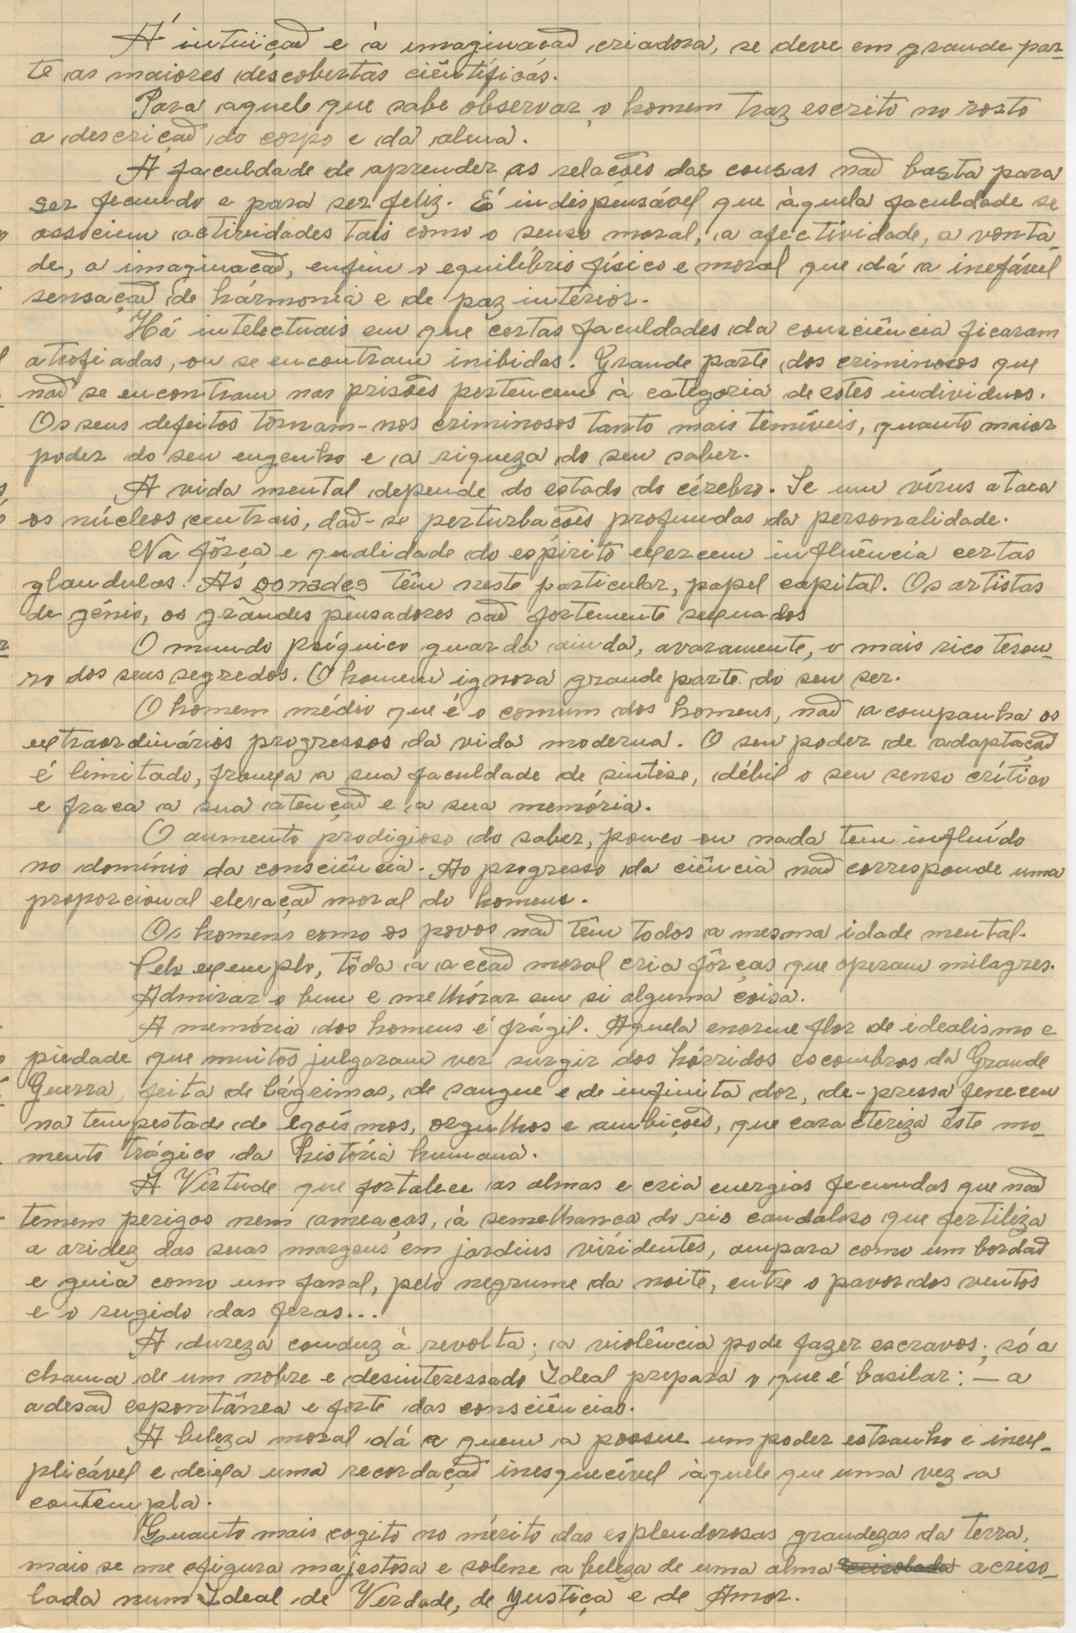 À intuïção e à imaginação criadora, se deve em grande par-
te as maiores descobertas científicas.
Para aquele que sabe observar, o homem traz escrito no rosto
a descrição do corpo e da alma.
A faculdade de aprender as relações das cousas não basta para
ser fecundo e para ser feliz. É indispensável que àquela faculdade se
associem actividades tais como o senso moral, a afectividade, a vonta-
de, a imaginação, enfim o equilíbrio físico e moral que dá a inefável
sensação de hármonia e de paz intérior.
Há intelectuais em que certas faculdades da consciência ficaram
atrofiadas, ou se encontram inibidas. Grande parte dos criminosos que
não se encontram nas prisões pertencem à categoria destes individuos.
Os seus defeitos tornam-nos criminosos tanto mais temíveis, quanto maior
poder do seu engenho e a riqueza do seu saber.
A vida mental depende do estado do cérebro. Se um vírus ataca
os núcleos centrais, dão-se perturbações profundas da personalidade.
Na fôrça e qualidade do espírito exercem influência certas
glandulas. As gonades têm neste particular, papel capital. Os artistas
de génio, os grandes pensadores são fortemente sexuados
O mundo psíquico guarda ainda, avaramente, o mais rico tesou-
ro dos seus segredos. O homem ignora grande parte do seu ser.
O homem médio que é o comum dos homens, não acompanha os
extraordinários progressos da vida moderna. O seu poder de adaptação
é limitado, frouxa a sua faculdade de síntese, débil o seu senso crítico
e fraca a sua atenção e a sua memória.
O aumento prodigioso do saber, pouco ou nada tem influído
no domínio da consciência. Ao progresso da ciência não corresponde uma
proporcional elevação moral do homem.
Os homens como os povos não têm todos a mesma idade mental.
Pelo exemplo, tôda a acção moral cria fôrças que operam milagres.
Admirar o bem e melhórar em si alguma coisa.
A memória dos homens é frágil. Aquela enorme flor de idealismo e
piedade que muitos julgaram ver surgir dos hórridos escombros da Grande
Guerra, feita de lágrimas, de sangue e de infinita dor, de-pressa feneceu
na tempestade de egoísmos, orgulhos e ambições, que caracteriza êste mo-
mento trágico da história humana.
A Virtude que fortalece as almas e cria energias fecundas que não
temem perigos nem ameaças, à semelhança do rio caudaloso que fertiliza
a aridez das suas margens em jardins viridentes, ampara como um bordão
e guia como um fanal, pelo negrume da noite, entre o pavor dos ventos
e o rugido das feras...
A dureza conduz à revolta; a violência pode fazer escravos; só a
chama de um nobre e desinteressado Ideal prepara o que é basilar: — a
adesão espontânea e forte das consciências.
A beleza moral dá a quem a possue um poder estranho e inex-
plicável e deixa uma recordação inesquecível àquele que uma vez a
contempla.
Quanto mais cogito no mérito das esplendorosas grandezas da terra,
mais se me afigura majestosa e solene a beleza de uma alma acriso-
lada num Ideal de Verdade, de Justiça e de Amor.